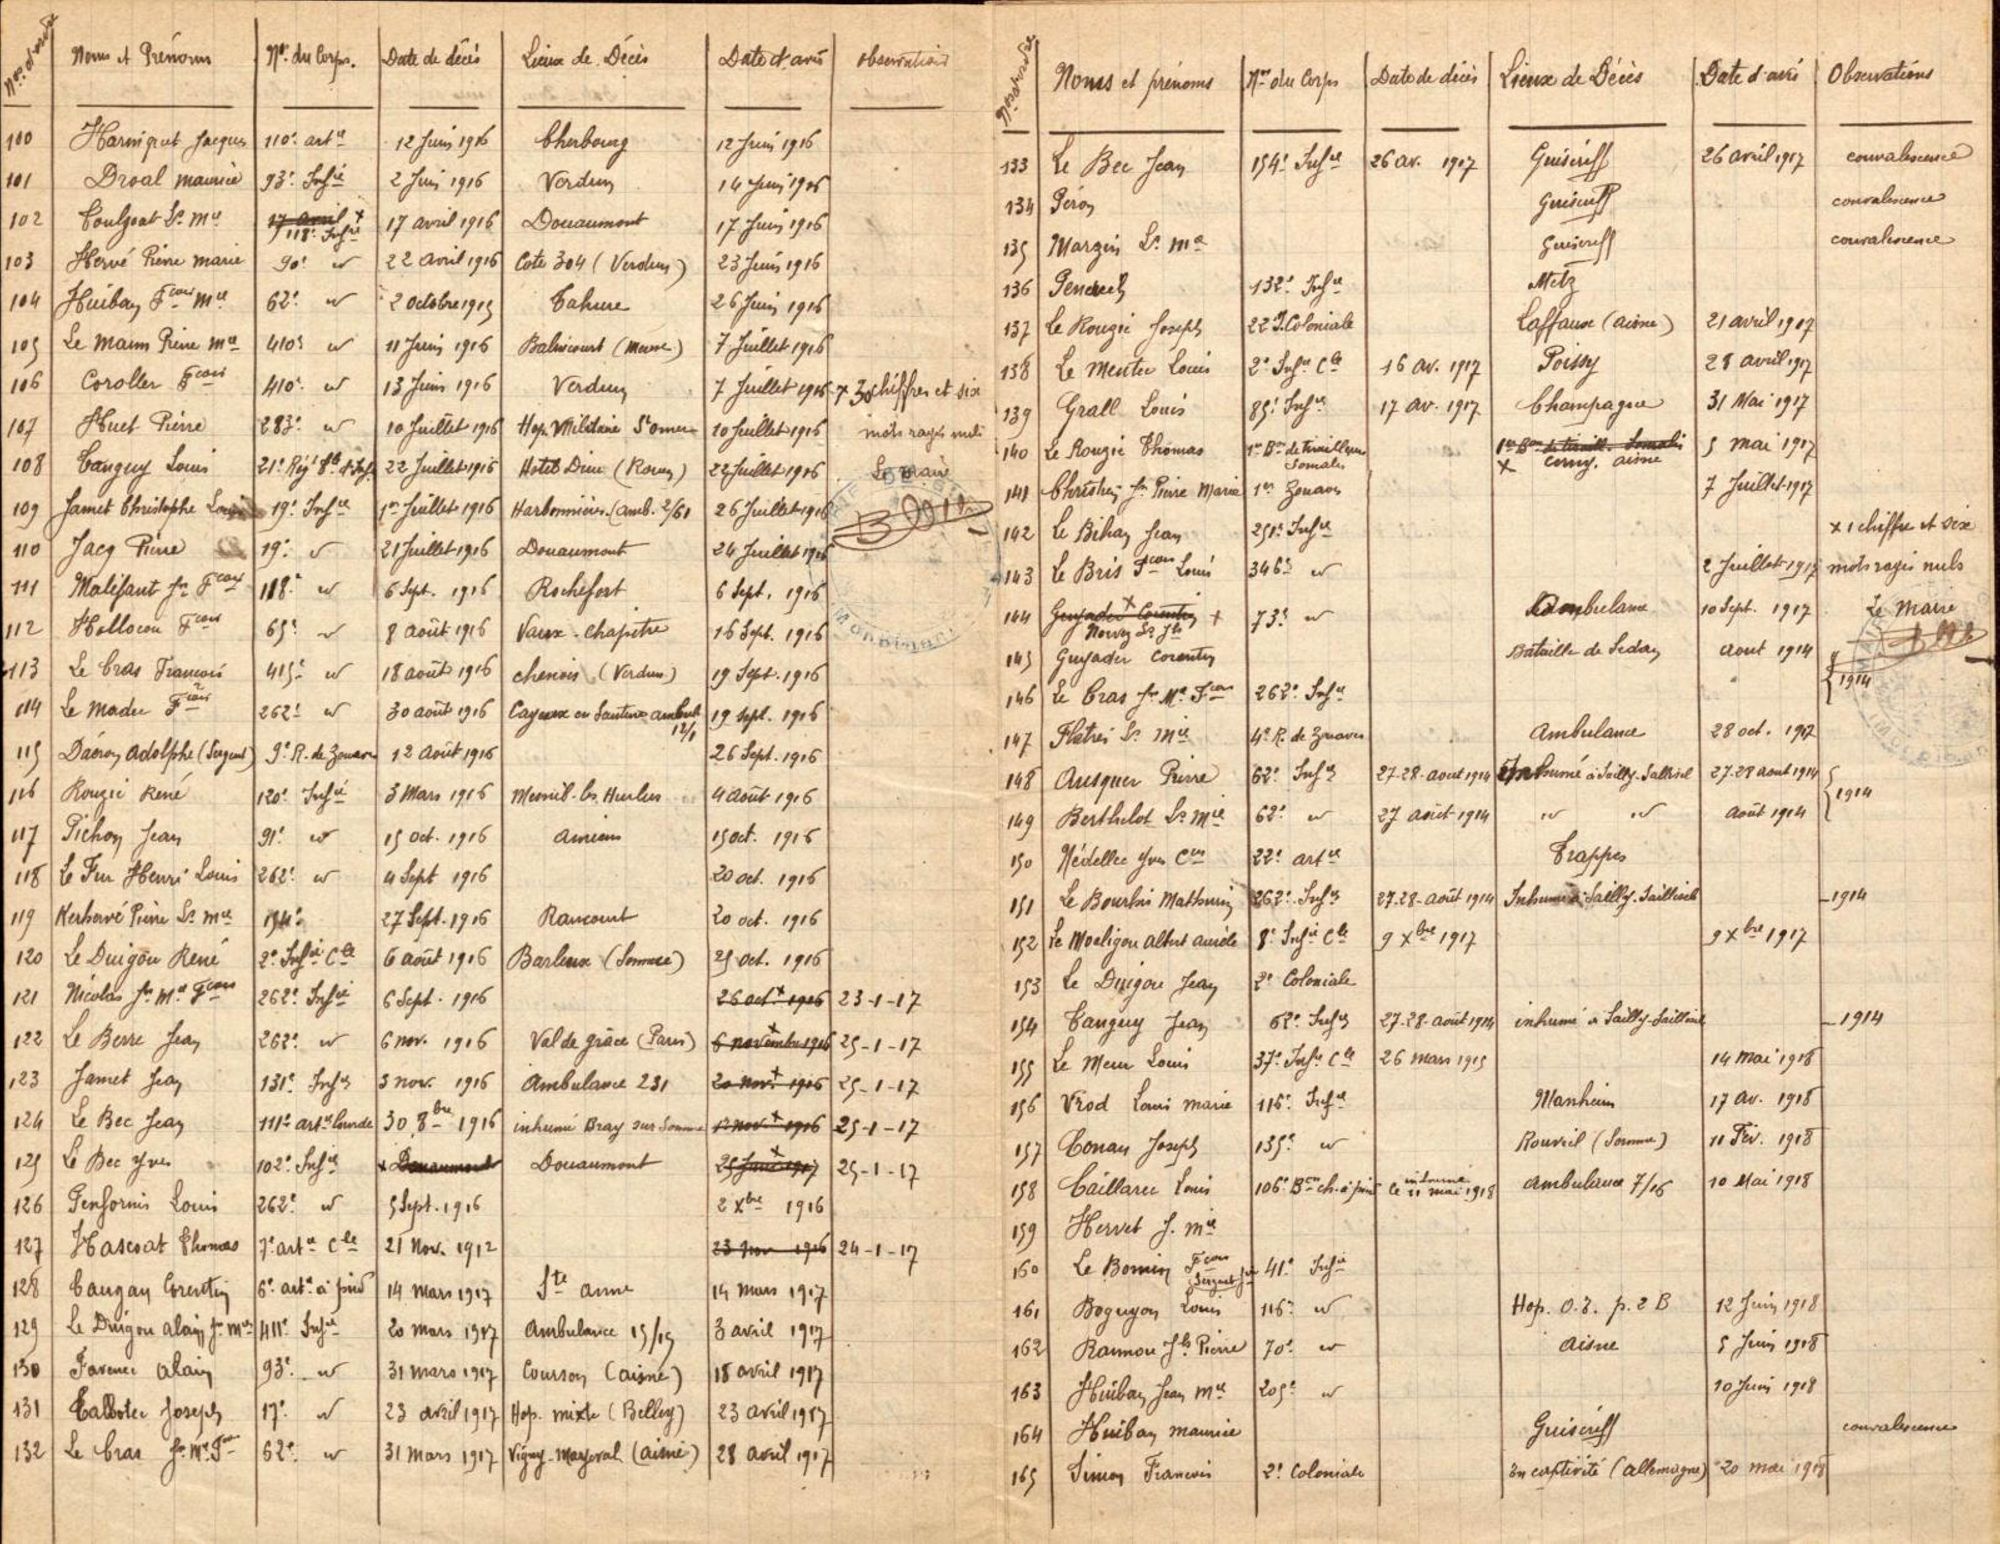 Nos d'ordre Noms et Prénoms Nos du Corps. Date de décès Lieux de Décès Date d'avis observations
100 Harniquet Jacques 110e artie 12 Juin 1916 Cherbourg 12 Juin 1916
101 Droal maurice 93e Infie 2 Juin 1916 Verdun 14 Juin 1916
102 Coulgoat Ls Mie 17 avril x 118e Infie 17 avril 1916 Douaumont 17 Juin 1916
103 Hervé Pierre marie 90e id 22 avril 1916 Cote 304 (Verdun) 23 Juin 1916
104 Huiban Fcois Mie 62e id 2 octobre 1915 Tahure 26 Juin 1916
105 Le Mamm Pierre Mie 410e id 11 Juin 1916 (Meuse) 7 Juillet 1916
106 Coroller Fcois 410e id 13 Juin 1916 Verdun 7 Juillet 1916 x 30 chiffres et six
107 Huet Pierre 283e id 10 Juillet 1916 Hop. Militaire St omer 10 Juillet 1916 mots rayés nuls
108 Tanguy Louis 21e 22 Juillet 1916 Hotel Dieu (Rouen) 22 Juillet 1916 Le maire
109 Jamet Christophe Louis 19e Infie 1er Juillet 1916 Harbonnières (amb. 2/61 26 Juillet 1916
110 Jacq Pierre 19e id 21 Juillet 1916 Douaumont 24 Juillet 1916
111 Malifaut Jn Fcois 118e id 6 Sept. 1916 Rochefort 6 Sept. 1916
112 Hollocou Fcois 65e id 8 août 1916 Vaux-chapitre 16 Sept. 1916
113 Le Cras Francois 415e id 18 août 1916 chenois (Verdun) 19 Sept. 1916
114 Le Madec Fcois 262e id 30 août 1916 Cayeux en Santerre ambul. 12/1 19 sept. 1916
115 Daéron Adolphe (Sergent) 9e R. de Zouaves 12 Août 1916 26 Sept. 1916
116 Rouzic René 120e Infie 3 Mars 1916 Mesnil-les Hurlus 4 août 1916
117 Pichon Jean 91e id 15 oct. 1916 Amiens 15 oct. 1916
118 Le Fur Henri Louis 262e id 4 Sept 1916 20 oct. 1916
119 Kerhervé Pierre Ls Mie 154e 27 Sept. 1916 Rancourt 20 oct. 1916
120 Le Duigou René 2e Infie Cle 6 août 1916 Barleux (Somme) 25 oct. 1916
121 Nicolas Jn Mie Fcois 262e Infie 6 Sept. 1916 26 oct x 1916 23-1-17
122 Le Berre Jean 262e id 6 nov. 1916 Val de grâce (Paris) 6 novembre 1916 25-1-17
123 Jamet Jean 131e Infie 3 nov. 1916 Ambulance 231 20 nov. x 1916 25-1-17
124 Le Bec Jean 111e artie lourde 30 8bre 1916 inhumé Bray sur Somme 12 nov. x 1916 25-1-17
125 Le Bec Yves 102e Infie x Douaumont Douaumont 25 Janv x 1917 25-1-17
126 Penfornis Louis 262e id 5 Sept. 1916 2 Xbre 1916
127 Hascoat Thomas 7e artie Cle 21 Nov. 1912 23 nov 1916 24-1-17
128 Caugan Corentin 6e artie à pied 14 mars 1917 Ste anne 14 mars 1917
129 Le Duigou Alain Jn Mie 411e Infie 20 mars 1917 Ambulance 15/19 3 avril 1917
130 Favenec Alain 93e id 31 mars 1917 Courson (aisne) 18 avril 1917
131 Talbotec Joseph 17e id 23 avril 1917 Hop. mixte (Belley) 23 avril 1917
132 Le Cras Jn Mie Fcois 62e id 31 mars 1917 (aisne) 28 avril 1917
Nos d'ordre Noms et prénoms Nos du Corps Date de décès Lieux de Décès Date d'avis Observations
133 Le Bec Jean 154e Infie 26 av. 1917 Guiscriff 26 avril 1917 convalescence
134 Péron Guiscriff convalescence
135 Margin Ls Mie Guiscriff convalescence
136 132e Infie Metz
137 Le Rouzic Joseph 22e I. Coloniale Laffaux (aisne) 21 avril 1917
138 Le Mentec Louis 2e Infie Cle 16 av. 1917 Poissy 28 avril 1917
139 Grall Louis 85e Infie 17 av. 1917 Champagne 31 Mai 1917
140 Le Rouzic Thomas 1er Bon de tirailleurs Somalis 1er Bon de tiraill. Somalis x corny. aisne 5 mai 1917
141 Christien Jn Pierre Marie 1er Zouaves 7 Juillet 1917
142 Le Bihan Jean 251e Infie x 1 chiffre et six
143 Le Bris Fcois Louis 346e id 2 Juillet 1917 mots rayés nuls
144 Guyader x Corentin x Norvez Ls Jh 73e id Ambulance 10 Sept. 1917 Le Maire
145 Guyader Corentin Bataille de Sedan aout 1914
146 Le Cras Jn Mie Fcois 262e Infie 1914
147 Flatrès Ls Mie 4e R. de Zouaves Ambulance 28 oct. 1917
148 Ausquer Pierre 62e Infie 27-28-aout 1914 Inhumé à Sailly-Saillisel 27-28 aout 1914
149 Berthelot Ls Mie 62e id 27 août 1914 id id août 1914 1914
150 Hédellec Yves Cin 22e artie Frappes
151 Le Bourhis Mathurin 262e Infie 27-28-août 1914 Inhumé à Sailly-Saillisel -1914
152 Le Moeligou Albert aurèle 8e Infie Cle 9 Xbre 1917 9 Xbre 1917
153 Le Duigou Jean 2e Coloniale
154 Tanguy Jean 62e Infie 27-28-août 1914 inhumé à Sailly-Saillisel -1914
155 Le Meur Louis 37e Infie Cle 26 mars 1915 14 mai 1918
156 Vrod Louis marie 116e Infie Manheim 17 av. 1918
157 Conan Joseph 135e id Rouvrel (Somme) 11 Fév. 1918
158 Caillarec Louis 106e Bon ch. à pied inhumé le 21 mai 1918 Ambulance 7/16 10 Mai 1918
159 Hervet J. Mie
160 Le Bomin Fcois Sergent 41e Infie
161 Boguyon Louis 116e id Hop. O.E. p. 2 B 12 Juin 1918
162 Rannou Jh Pierre 70e id aisne 5 Juin 1918
163 Huiban Jean Mie 205e id 10 Juin 1918
164 Huiban maurice Guiscriff convalescence
165 Simon Francois 2e Coloniale En captivité (Allemagne) 20 mai 1918